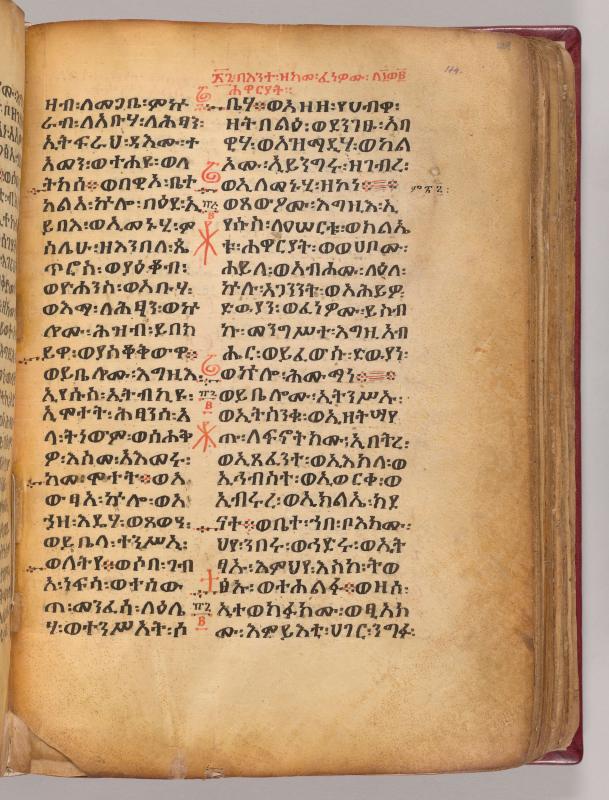 ፳፪ በእንተ፡ ዘከመ፡ ፈነዎሙ፡ ለ፲ወ፪
ሐዋርያት፡፡
144.
ዛብ፡ ለመጋቤ፡ ምኵ
ራብ፡ ለአቡሃ፡ ለሕፃን፡
ኢትፍራህ፡ ዳእሙ፡ ተ
አመን፡ ወተሐዩ፡ ወለ
ትከሰ፡ ወበዊኦ፡ ቤተ
አልቦ፡ ኵሎ፡ በዕደ፡ ኢ
ይበእ፡ ወኢመኑሂ፡ ም
ስሌሁ፡ ዘእንበለ፡ ጴ
ጥሮስ፡ ወያዕቆብ፡
ወዮሐንስ፡ ወአቡሃ፡
ወእማ፡ ለሕፃን፡ ወኵ
ሎሙ፡ ሕዝብ፡ ይበክ
ይዋ፡ ወያስቆቅውዋ፡
ወይቤሎሙ፡ እግዚእ፡
ኢየሱስ፡ ኢትብክዩ፡
ኢሞተት፡ ሕፃንሰ፡ አ
ላ፡ ትነውም፡ ወሰሐቅ
ዎ፡ እስመ፡ አእመሩ፡
ከመ፡ ሞተት፡ ወአ
ውፃአ፡ ኵሎ፡ ወአ
ኀዘ፡ እዴሃ፡ ወጸውዓ፡
ወይቤላ፡ ተንሥኢ፡
ወለትየ፡ ወሶበ፡ ገብ
አ፡ ነፍሳ፡ ወተሰው
ጠ፡ መንፈሳ፡ ለዕሌ
ሃ፡ ወተንሥአት፡ ሶ
ቤሃ፡ ወአዘዘ፡ የሀብዋ፡
ዘትበልዕ፡ ወደንገፁ፡ አበ
ዊሃ፡ ወአዝማዲሃ፡ ወከል
እሙ፡ ኢይንግሩ፡ ዘገብረ፡
ወኢለመኑሂ፡ ዘኮነ፡
ወጸውዖሙ፡ እግዚእ፡ ኢ
የሱስ፡ ለ፲ወ፪ቱ፡ ወክልኤ
ቱ፡ ሐዋርያት፡ ወወሀቦሙ፡
ኀይለ፡ ወአብሖሙ፡ ላዕለ፡
ኵሉ፡ አጋንንት፡ ወአሕይዎ፡
ድዉያን፡ ወፈነዎሙ፡ ይስብ
ኩ፡ መንግሥተ፡ እግዚአብ
ሔር፡ ወይፈውሱ፡ ድዉያነ፡
ወኵሎ፡ ሕሙማነ፡
ወይቤሎሙ፡ ኢትንሥኡ፡
ወኢትስንቁ፡ ወኢዘትሣየ
ጡ፡ ለፍኖትክሙ፡ ኢበትረ፡
ወኢጸፈንተ፡ ወኢእክለ፡ ወ
ኢኅብስተ፡ ወኢወርቀ፡ ወ
ኢብሩረ፡ ወኢክልኤ፡ ክዳ
ናተ፡ ወቤተ፡ ኀበ፡ ቦእክሙ፡
ህየ፡ ንበሩ፡ ወኀድሩ፡ ወኢት
ፃኡ፡ እምህየ፡ እስከ፡ ትወ
ፅኡ፡ ወተሐልፉ፡ ወዘሰ፡
ኢተወክፉክሙ፡ ወፂአክ
ሙ፡ እምይእቲ፡ ሀገር፡ ንግፉ፡